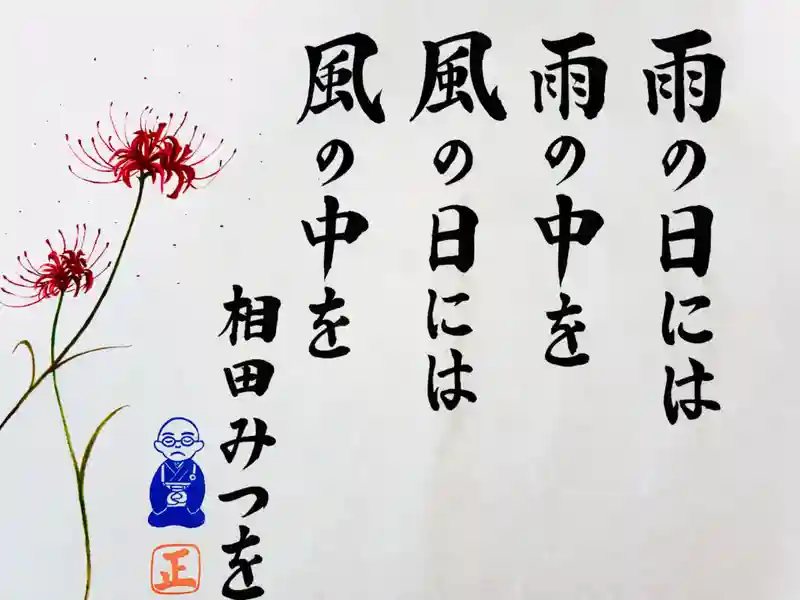 雨の日には
雨の中を
風の日には
風の中を
相田みつを
正